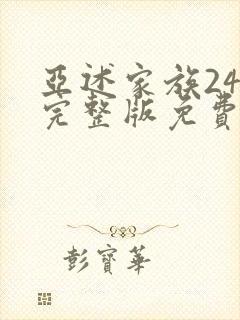 亞述家族24
完整版免費
彭寶華